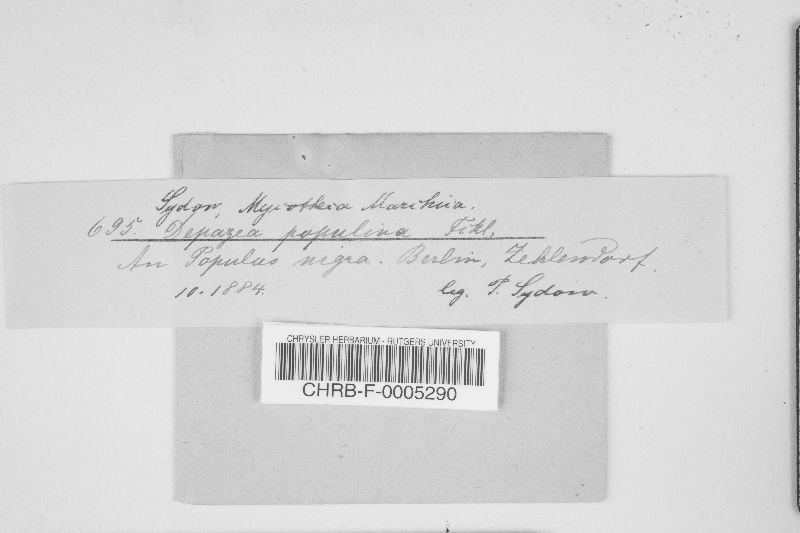 Sydow, Mycotheca Marchica.
695. Depazea populina Fckl.
An Populus nigra. Berlin, Zehlendorf.
10. 1884. leg. P. Sydow.
CHRYSLER HERBARIUM - RUTGERS UNIVERSITY
CHRB-F-0005290